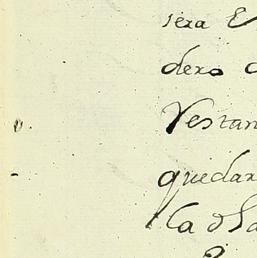 sera E
dero
Vestan
quedar
la d